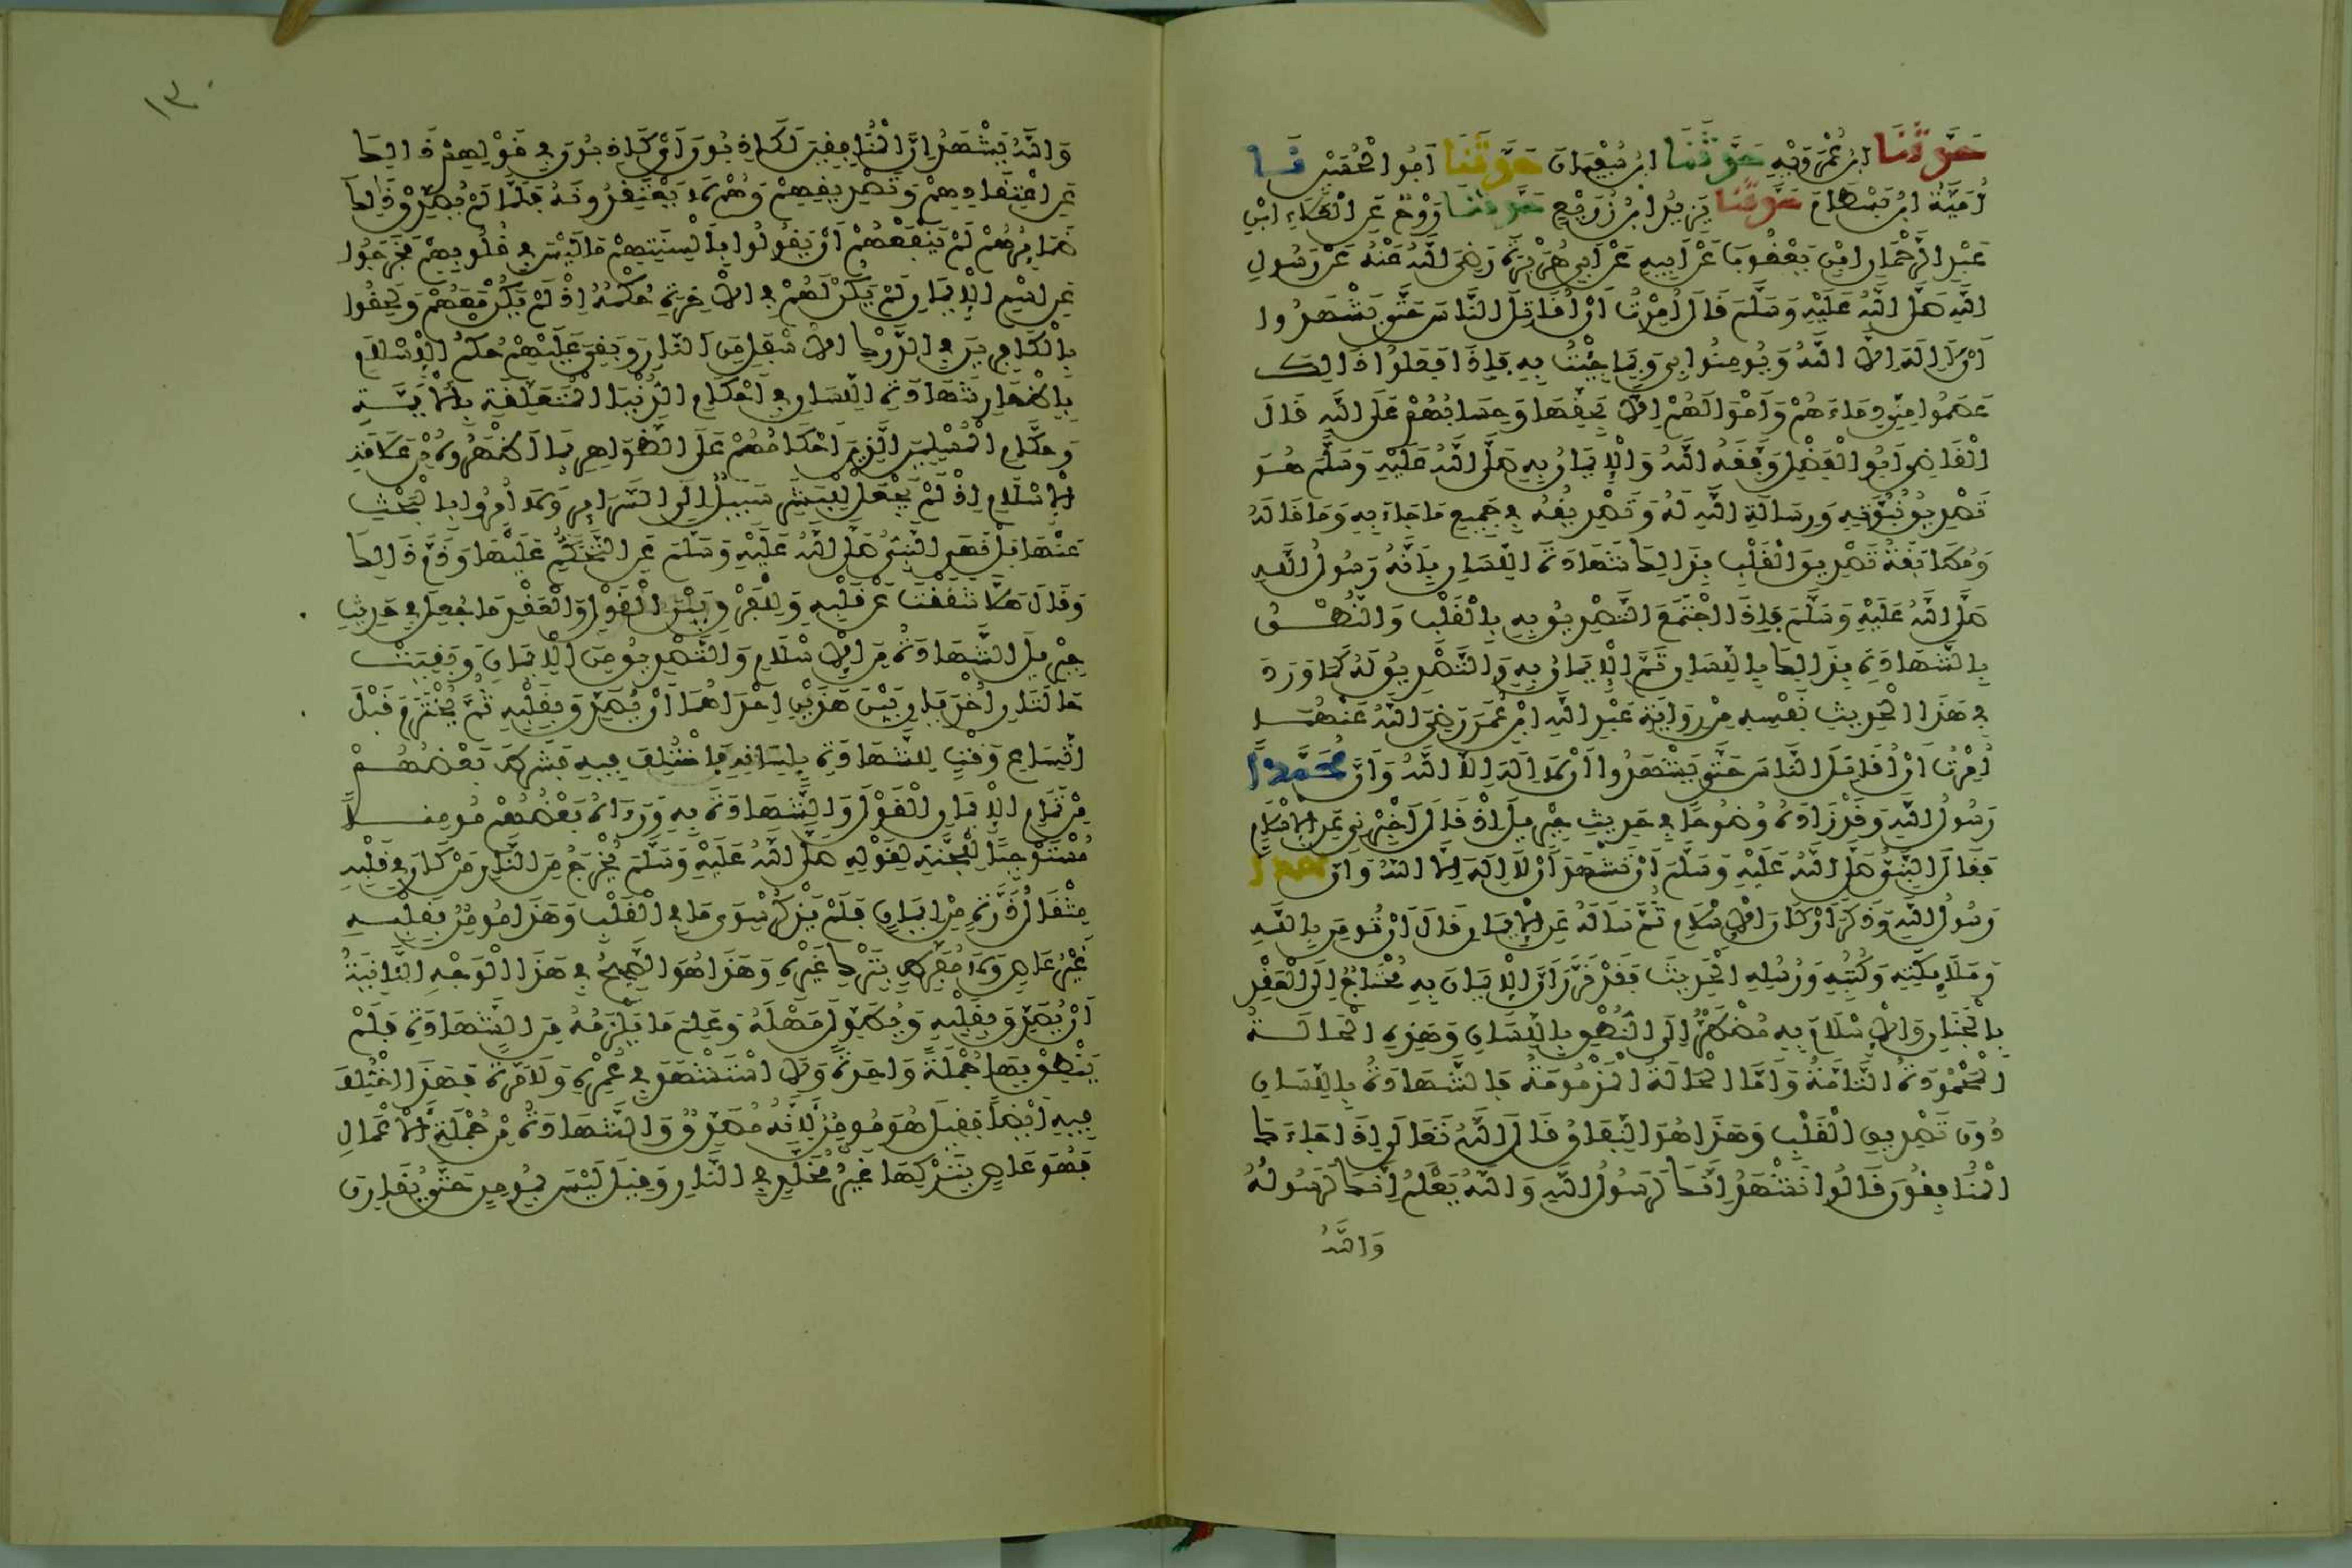 حَدَّثَنَا ابْنُ عَمْرَوَيْهِ حَدَّثَنَا ابْنُ سُفْيَانَ حَدَّثَنَا أَبُو الْحُسَيْنِ نَا
أُمَيَّةُ ابْنُ بَسْطَامَ حَدَّثَنَا يَزِيدُ ابْنُ زُرَيْعٍ حَدَّثَنَا رَوْحٌ عَنِ الْعَلَاءِ ابْنِ
عَبْدِ الرَّحْمَانِ ابْنِ يَعْقُوبَ عَنْ أَبِيهِ عَنْ أَبِي هُرَيْرَةَ رَضِيَ اللَّهُ عَنْهُ عَنْ رَسُولِ
اللَّهِ صَلَّى اللَّهُ عَلَيْهِ وَسَلَّمَ قَالَ أُمِرْتُ أَنْ أُقَاتِلَ النَّاسَ حَتَّى يَشْهَدُوا
أَنْ لَا إِلَهَ إِلَّا اللَّهُ وَيُومِنُوا بِي وَبِمَا جِئْتُ بِهِ فَإِذَا فَعَلُوا ذَالِكَ
عَصَمُوا مِنِّي دِمَاءَهُمْ وَأَمْوَالَهُمْ إِلَّا بِحَقِّهَا وَحِسَابُهُمْ عَلَى اللَّهِ قَالَ
الْقَاضِي أَبُو الْفَضْلِ وَفَّقَهُ اللَّهُ وَالْإِيمَانُ بِهِ صَلَّى اللَّهُ عَلَيْهِ وَسَلَّمَ هُوَ
تَصْدِيقُ نُبُوَّتِهِ وَرِسَالَةِ اللَّهِ لَهُ وَتَصْدِيقُهُ فِي جَمِيعِ مَا جَاءَ بِهِ وَمَا قَالَهُ
وَمُطَابَقَةُ تَصْدِيقِ الْقَلْبِ بِذَالِكَ شَهَادَةَ اللِّسَانِ بِأَنَّهُ رَسُولُ اللَّهِ
صَلَّى اللَّهُ عَلَيْهِ وَسَلَّمَ فَإِذَا اجْتَمَعَ التَّصْدِيقُ بِهِ بِالْقَلْبِ وَالنُّطْقُ
بِالشَّهَادَةِ بِذَالِكَ بِاللِّسَانِ تَمَّ الْإِيمَانُ بِهِ وَالتَّصْدِيقُ لَهُ كَمَا وَرَدَ
فِي هَذَا الْحَدِيثِ نَفْسِهِ مِنْ رِوَايَةِ عَبْدِ اللَّهِ ابْنِ عُمَرَ رَضِيَ اللَّهُ عَنْهُمَا
أُمِرْتُ أَنْ أُقَاتِلَ النَّاسَ حَتَّى يَشْهَدُوا أَنْ لَا إِلَهَ إِلَّا اللَّهُ وَأَنَّ مُحَمَّدًا
رَسُولُ اللَّهِ وَقَدْ زَادَهُ وُضُوحًا فِي حَدِيثِ جِبْرِيلَ إِذْ قَالَ أَخْبِرْنِي عَنِ الْإِسْلَامِ
فَقَالَ النَّبِيُّ صَلَّى اللَّهُ عَلَيْهِ وَسَلَّمَ أَنْ تَشْهَدَ أَنْ لَا إِلَهَ إِلَّا اللَّهُ وَأَنَّ مُحَمَّدًا
رَسُولُ اللَّهِ وَذَكَرَ أَرْكَانَ الْإِسْلَامِ ثُمَّ سَأَلَهُ عَنِ الْإِيمَانِ قَالَ أَنْ تُومِنَ بِاللَّهِ
وَمَلَائِكَتِهِ وَكُتُبِهِ وَرُسُلِهِ الْحَدِيثَ فَقَدْ قَرَّرَ أَنَّ الْإِيمَانَ بِهِ مُحْتَاجٌ إِلَى الْعَقْدِ
بِالْجَنَانِ وَالْإِسْلَامَ بِهِ مُضْطَرٌّ إِلَى النُّطْقِ بِاللِّسَانِ وَهَذِهِ الْحَالَةُ
الْمَحْمُودَةُ التَّامَّةُ وَأَمَّا الْحَالَةُ الْمَذْمُومَةُ فَالشَّهَادَةُ بِاللِّسَانِ
دُونَ تَصْدِيقِ الْقَلْبِ وَهَذَا هُوَ النِّفَاقُ قَالَ اللَّهُ تَعَالَى إِذَا جَاءَكَ
الْمُنَافِقُونَ قَالُوا نَشْهَدُ إِنَّكَ لَرَسُولُ اللَّهِ وَاللَّهُ يَعْلَمُ إِنَّكَ لَرَسُولُهُ
وَاللَّهُ
١٣٠
وَاللَّهُ يَشْهَدُ إِنَّ الْمُنَافِقِينَ لَكَاذِبُونَ أَيْ كَاذِبُونَ فِي قَوْلِهِمْ ذَالِكَ
عَنِ اعْتِقَادِهِمْ وَتَصْدِيقِهِمْ وَهُمْ لَا يَعْتَقِدُونَهُ فَلَمَّا لَمْ تُصَدِّقْ ذَالِكَ
ضَمَائِرُهُمْ لَمْ يَنْفَعْهُمْ أَنْ يَقُولُوا بِأَلْسِنَتِهِمْ مَا لَيْسَ فِي قُلُوبِهِمْ فَخَرَجُوا
عَنِ اسْمِ الْإِيمَانِ وَلَمْ يَكُنْ لَهُمْ فِي الْآخِرَةِ حُكْمُهُ إِذْ لَمْ يَكُنْ مَعَهُمْ وَلَحِقُوا
بِالْكَافِرِينَ فِي الدَّرْكِ الْأَسْفَلِ مِنَ النَّارِ وَبَقِيَ عَلَيْهِمْ حُكْمُ الْإِسْلَامِ
بِإِظْهَارِ شَهَادَةِ اللِّسَانِ فِي أَحْكَامِ الدُّنْيَا الْمُتَعَلِّقَةِ بِالْأَيِمَّةِ
وَحُكَّامِ الْمُسْلِمِينَ الَّذِينَ أَحْكَامُهُمْ عَلَى الظَّوَاهِرِ بِمَا أَظْهَرُوهُ مِنْ عَلَامَةِ
الْإِسْلَامِ إِذْ لَمْ يُجْعَلْ لِلْبَشَرِ سَبِيلٌ إِلَى السَّرَائِرِ وَلَا أُمِرُوا بِالْبَحْثِ
عَنْهَا بَلْ نَهَى النَّبِيُّ صَلَّى اللَّهُ عَلَيْهِ وَسَلَّمَ عَنِ التَّحَكُّمِ عَلَيْهَا وَذَمَّ ذَالِكَ
وَقَالَ هَلَّا شَقَقْتَ عَنْ قَلْبِهِ وَالْفَرْقُ بَيْنَ الْقَوْلِ وَالْعَقْدِ مَا جُعِلَ فِي حَدِيثِ
جِبْرِيلَ الشَّهَادَةُ مِنَ الْإِسْلَامِ وَالتَّصْدِيقُ مِنَ الْإِيمَانِ وَبَقِيَتْ
حَالَتَانِ أُخْرَيَانِ بَيْنَ هَذَيْنِ إِحْدَاهُمَا أَنْ يُصَدِّقَ بِقَلْبِهِ ثُمَّ يُخْتَرَمَ قَبْلَ
اتِّسَاعِ وَقْتٍ لِلشَّهَادَةِ بِلِسَانِهِ فَاخْتُلِفَ فِيهِ فَشَرَطَ بَعْضُهُمْ
مِنْ تَمَامِ الْإِيمَانِ الْقَوْلَ وَالشَّهَادَةَ بِهِ وَرَءَاهُ بَعْضُهُمْ مُومِنًا
مُسْتَوْجِبًا لِلْجَنَّةِ لِقَوْلِهِ صَلَّى اللَّهُ عَلَيْهِ وَسَلَّمَ يُخْرَجُ مِنَ النَّارِ مَنْ كَانَ فِي قَلْبِهِ
مِثْقَالُ ذَرَّةٍ مِنْ إِيمَانٍ فَلَمْ يَذْكُرْ سِوَى مَا فِي الْقَلْبِ وَهَذَا مُومِنٌ بِقَلْبِهِ
غَيْرُ عَاصٍ وَلَا مُفَرِّطٍ بِتَرْكِ غَيْرِهِ وَهَذَا هُوَ الصَّحِيحُ فِي هَذَا الْوَجْهِ الثَّانِيَةُ
أَنْ يُصَدِّقَ بِقَلْبِهِ وَيُطَوِّلَ مَهْلَهُ وَعَلِمَ مَا يَلْزَمُهُ مِنَ الشَّهَادَةِ فَلَمْ
يَنْطِقْ بِهَا جُمْلَةً وَاحِدَةً وَلَا اسْتَشْهَدَ فِي عُمُرِهِ وَلَا مَرَّةً فَهَذَا اخْتُلِفَ
فِيهِ أَيْضًا فَقِيلَ هُوَ مُومِنٌ لِأَنَّهُ مُصَدِّقٌ وَالشَّهَادَةُ مِنْ جُمْلَةِ الْأَعْمَالِ
فَهُوَ عَاصٍ بِتَرْكِهَا غَيْرُ مُخَلَّدٍ فِي النَّارِ وَقِيلَ لَيْسَ بِمُومِنٍ حَتَّى يُقَارِنَ